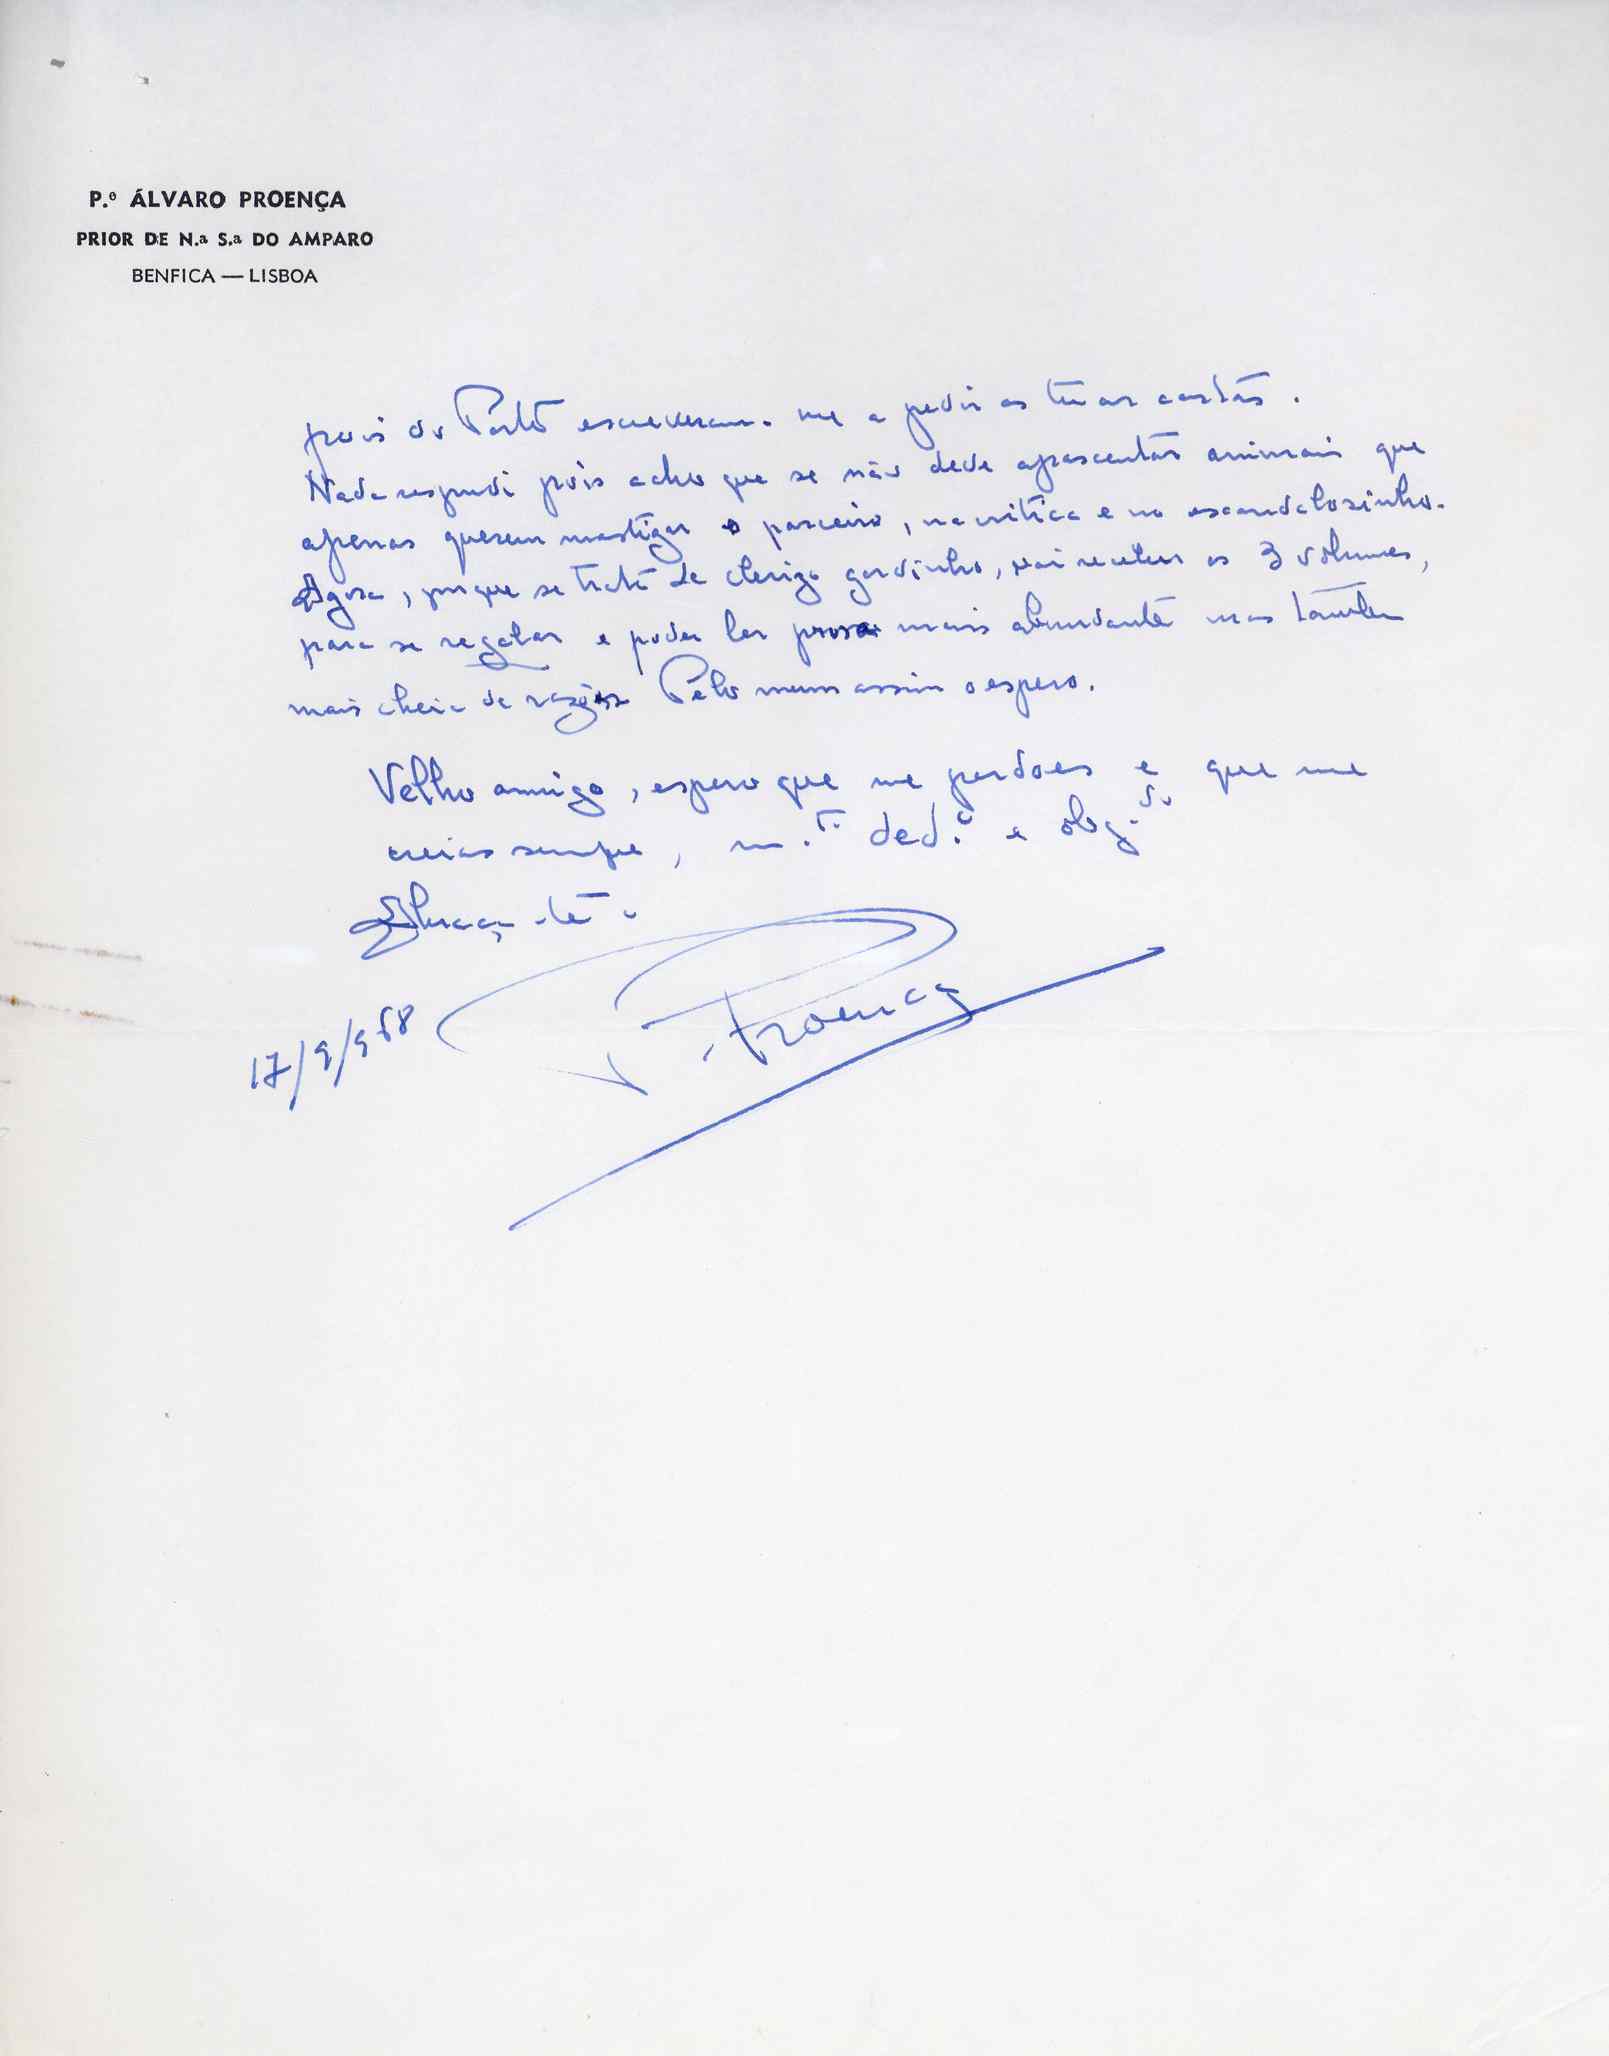 P.e ÁLVARO PROENÇA
PRIOR DE N.ª S.ª DO AMPARO
BENFICA — LISBOA
pois do Porto escreveram-me a pedir as tuas cartas.
Nada respondi pois acho que se não deve apascentar animais que
apenas querem mastigar o parceiro, na critica e no escandalosinho.
Agora, porque se trata de clerigo gordinho, vai receber os 3 volumes,
para se regalar e poder ler prosa mais abundante mas tambem
mais cheia de razões. Pelo menos assim o espero.
Velho amigo, espero que me perdoes e que me
creias sempre, m.to ded.o e obg.do
Abraça-te
P. Proença
17/9/968